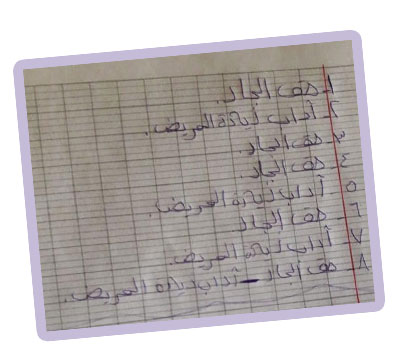 ١- حق الجار.
٢- آداب زيارة المريض.
٣- حق الجار.
٤- حق الجار.
٥- آداب زيارة المريض.
٦- حق الجار
٧- آداب زيارة المريض.
٨- حق الجار - آداب زيارة المريض.